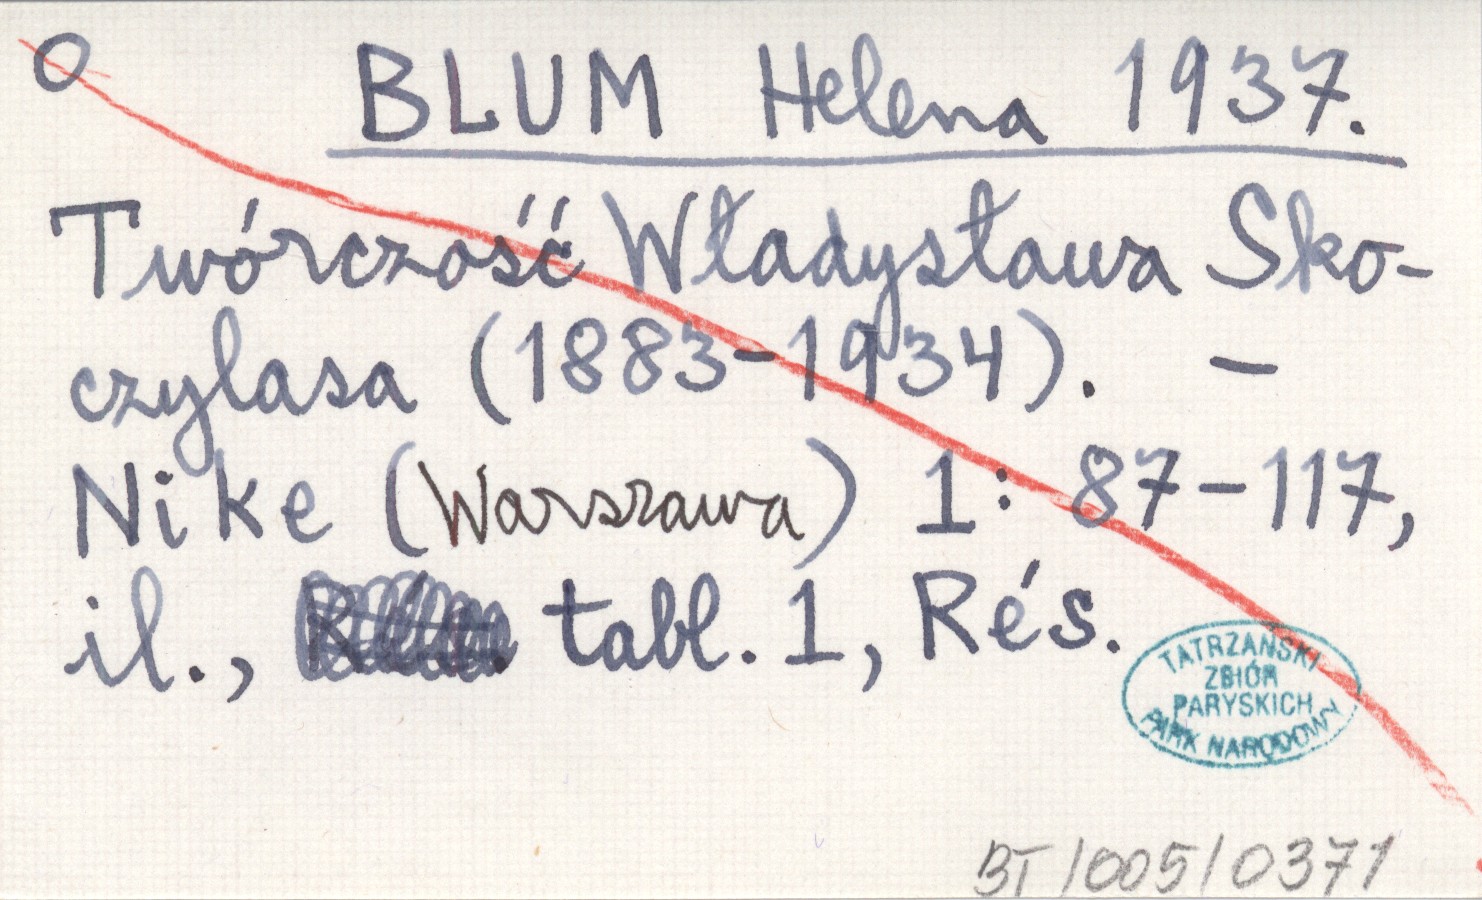 O BLUM Helena 1937.
Twórczość Władysława Sko-
czylasa (1883-1934). –
Nike (Warszawa) 1: 87-117,
il., tabl. 1, Rés.
TATRZAŃSKI
ZBIÓR
PARYSKICH
PARK NARODOWY
BT/005/0371